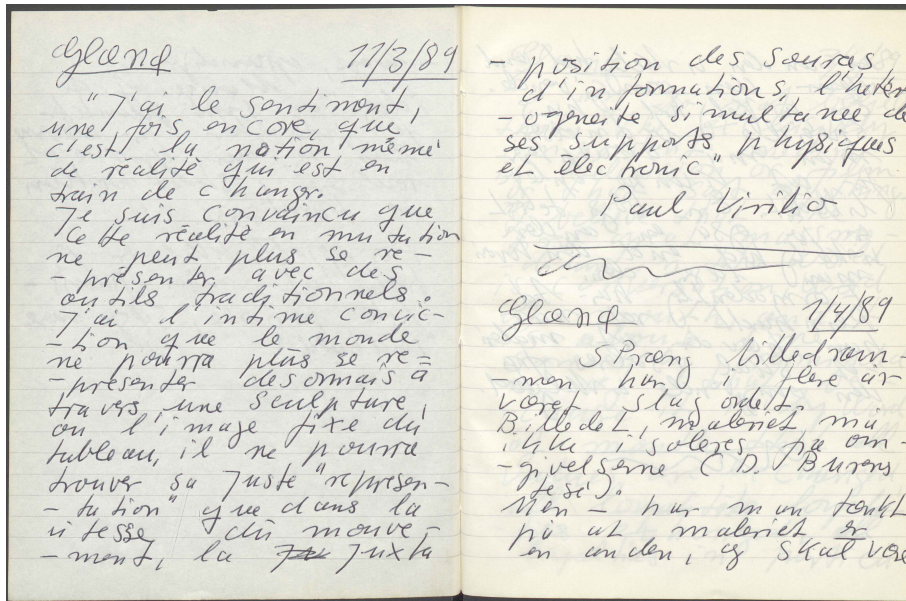 Gland 11/3/89
"J'ai le sentiment,
une fois encore, que
c'est la notion même
de réalité qui est en
train de changer.
Je suis convaincu que
cette réalité en mutation
ne peut plus se re-
-présenter avec des
outils traditionnels.
J'ai l'intime convic-
-tion que le monde
ne pourra plus se re=
-présenter desormais à
travers une sculpture,
ou l'image fixe du
tableau, il ne pourra
trouver sa juste "represen-
-tation" que dans la
vitesse du mouve-
-ment, la juxta
- position des sources
d'informations, l'heter
-ogeneite simultanee de
ses supports physiques
et électronic"
Paul Virilio
Gland 1/4/89
SPræng billedram-
-men har i flere år
været slagordet.
Billedet, maleriet, må
ikke isoleres fra om-
-givelserne (D. Burens
tesé).
Men - har man tænkt
på at maleriet er
en anden, og skal være